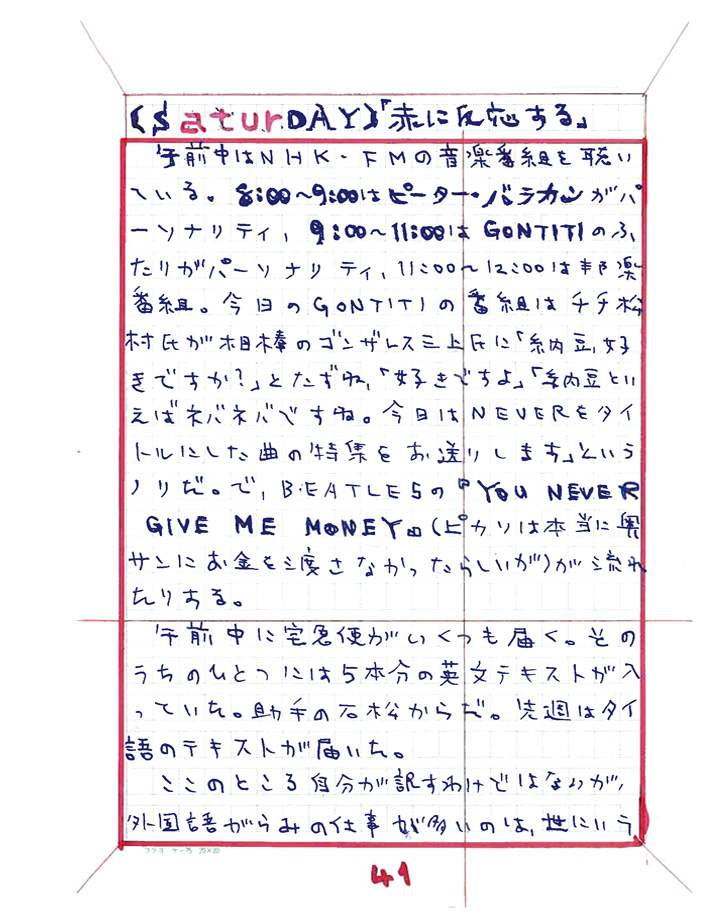 (SaturDAY)「赤に反応する」
午前中はNHK・FMの音楽番組を聴い
ている。8:00〜9:00はピーター・バラカンがパ
ーソナリティ、9:00〜11:00はGONTITIのふ
たりがパーソナリティ、11:00〜12:00は邦楽
番組。今日のGONTITIの番組はチチ松
村氏が相棒のゴンザレス三上氏に「納豆、好
きですか?」とたずね、「好きですよ」「納豆とい
えばネバネバですね。今日はNEVERをタイ
トルにした曲の特集をお送りします」という
ノリだ。で、BEATLESの『YOU NEVER
GIVE ME MONEY』(ピカソは本当に奥
サンにお金を渡さなかったらしいが)が流れ
たりする。
午前中に宅急便がいくつも届く。その
うちのひとつには5本分の英文テキストが入
っていた。助手の石松からだ。先週はタイ
語のテキストが届いた。
ここのところ自分が訳すわけではないが、
外国語がらみの仕事が多いのは、世にいう
コクヨ ケ-75 20×20
41